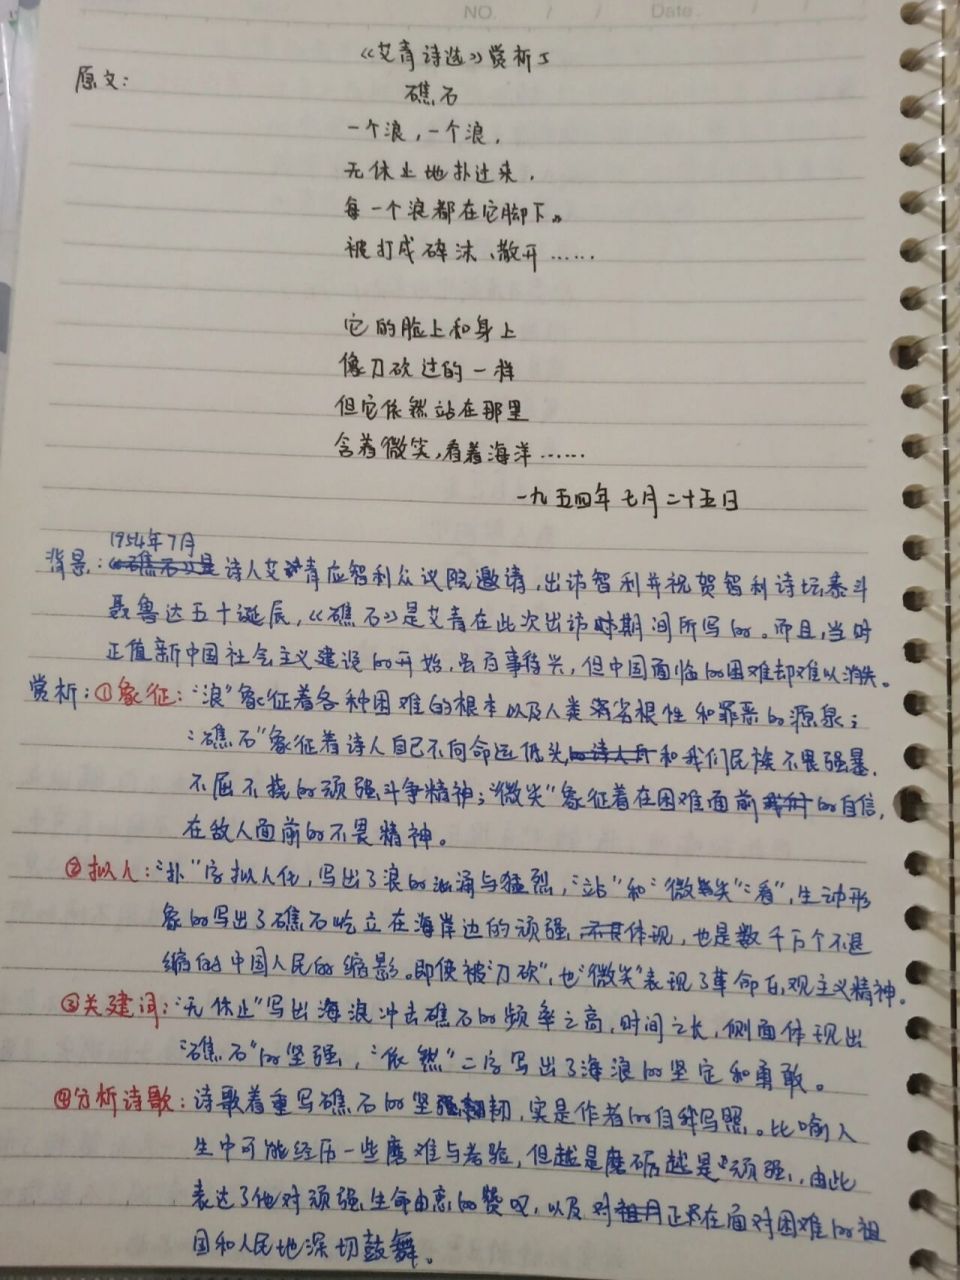 NO. / / Date. / /
《艾青诗选》赏析5
原文:
礁石
一个浪,一个浪,
无休止地扑过来,
每一个浪都在它脚下。
被打成碎沫、散开……
它的脸上和身上
像刀砍过的一样
但它依然站在那里
含着微笑,看着海洋……
一九五四年七月二十五日
1954年7月
背景:《礁石》是诗人艾青应智利众议院邀请,出访智利并祝贺智利诗坛泰斗
聂鲁达五十诞辰,《礁石》是艾青在此次出访时期间所写的。而且,当时
正值新中国社会主义建设的开始,虽百事待兴,但中国面临的困难却难以消失。
赏析:①象征:“浪”象征着各种困难的根本以及人类劣根性和罪恶的源泉;
“礁石”象征着诗人自己不向命运低头和我们民族不畏强暴,
不屈不挠的顽强斗争精神;“微笑”象征着在困难面前的自信,
在敌人面前的不畏精神。
②拟人:“扑”字拟人化,写出了浪的汹涌与猛烈,“站”和“微笑”“看”,生动形
象的写出了礁石屹立在海岸边的顽强体现,也是数千万个不退
缩的中国人民的缩影。即使被“刀砍”,也“微笑”表现了革命乐观主义精神。
③关建词:“无休止”写出海浪冲击礁石的频率之高,时间之长,侧面体现出
“礁石”的坚强,“依然”二字写出了海浪的坚定和勇敢。
④分析诗歌:诗歌着重写礁石的坚韧,实是作者的自我写照。比喻人
生中可能经历一些磨难与考验,但越是磨砺越是顽强,由此
表达了他对顽强生命由衷的赞叹,以及对正在面对困难的祖
国和人民地深切鼓舞。